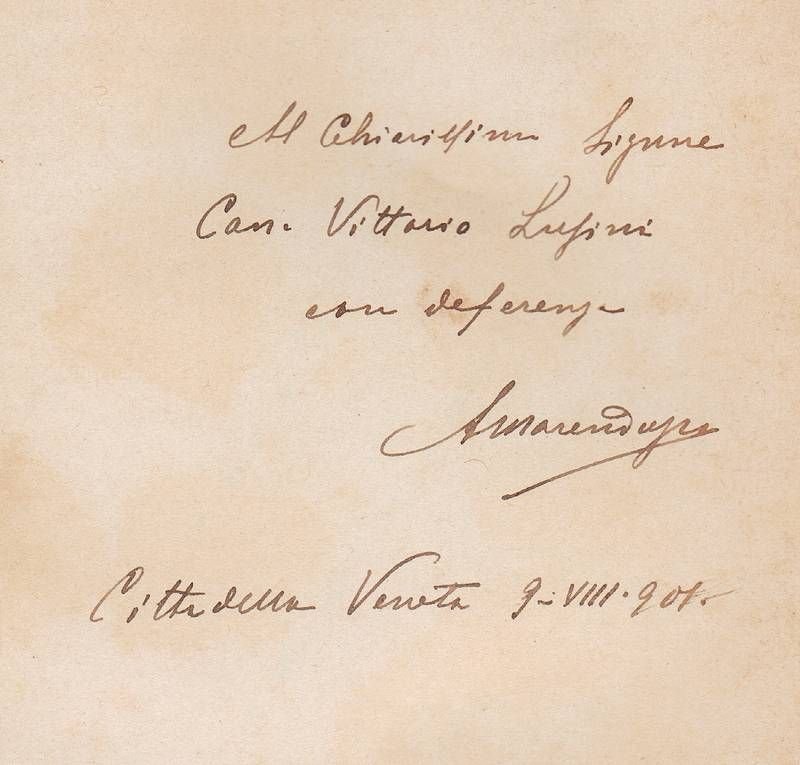 Al Chiarissimo Signore
Cav. Vittorio Lusini
con deferenza
Cittadella Veneta 9-VIII.901.